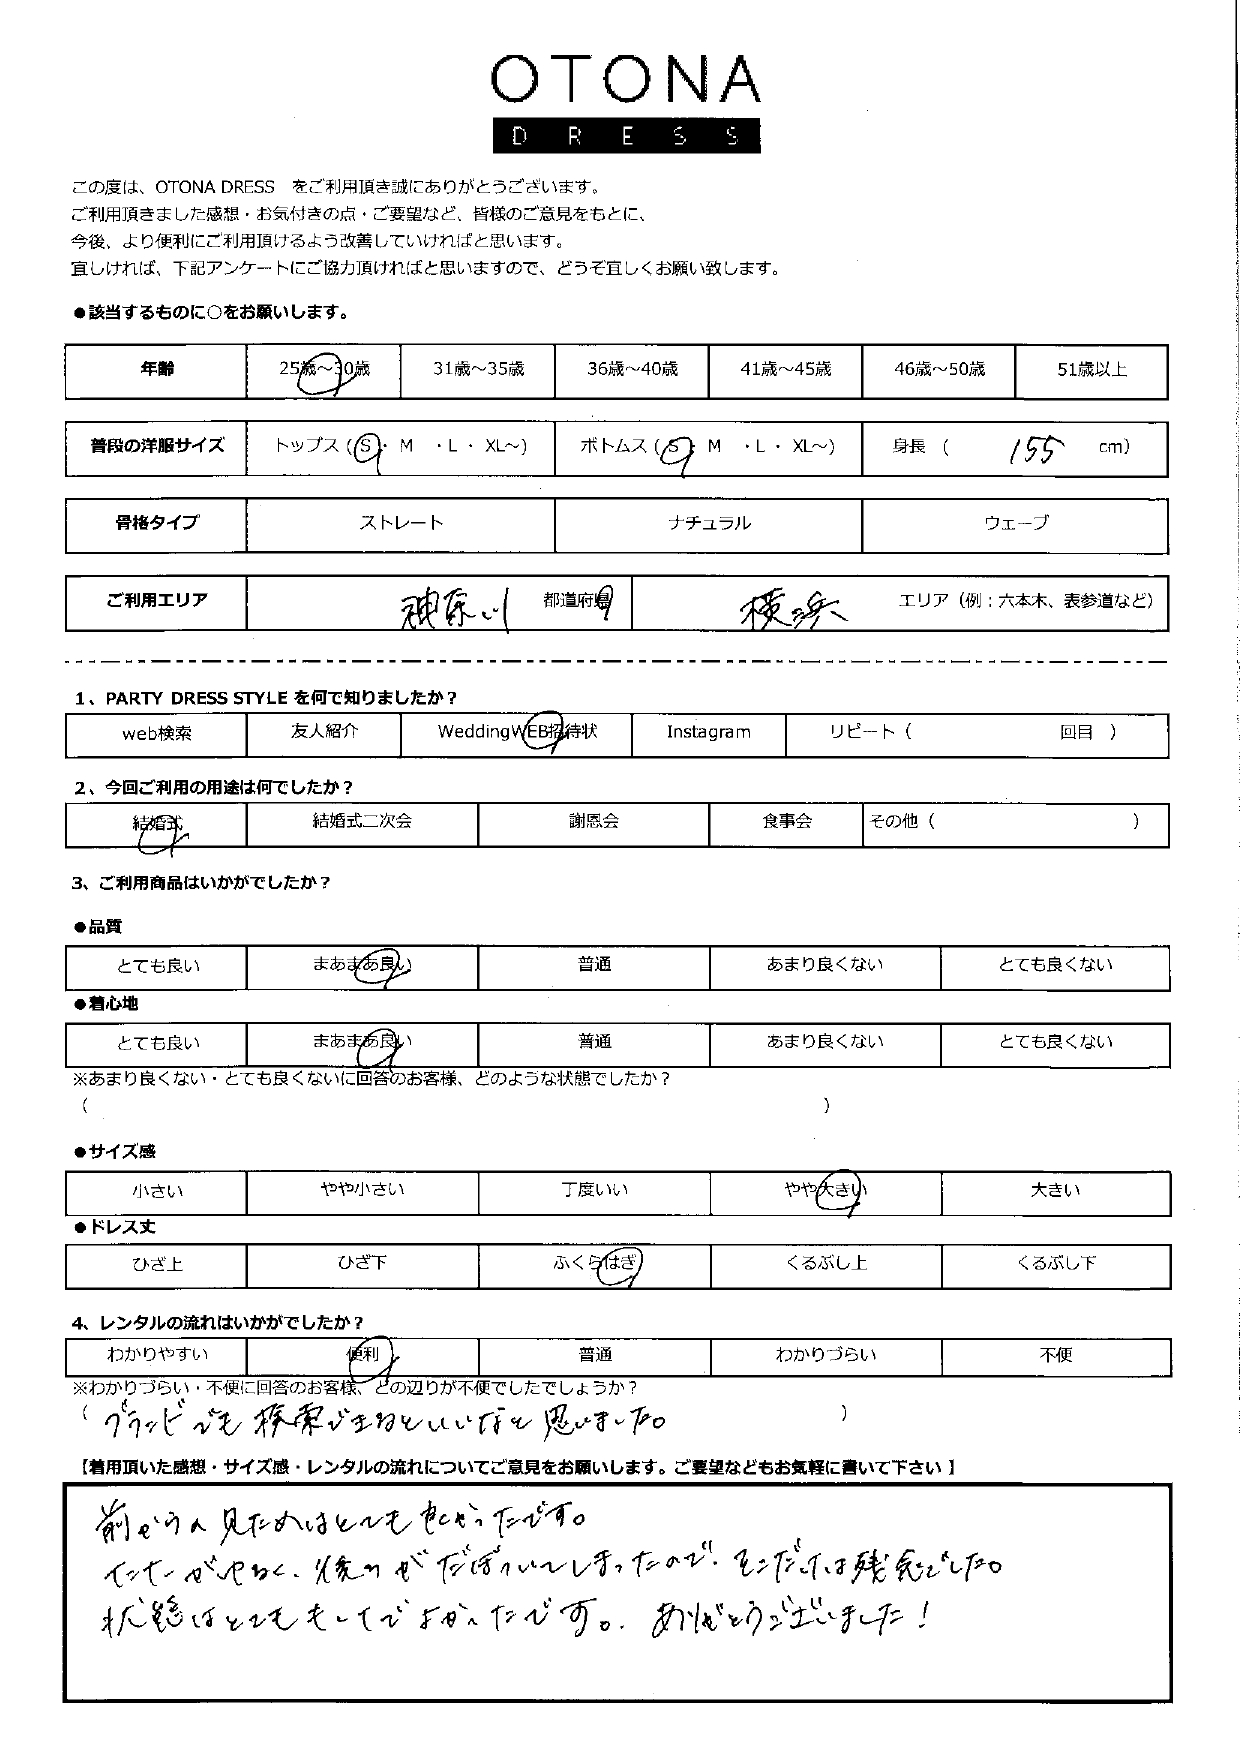 OTONA
DRESS
この度は、OTONA DRESS をご利用頂き誠にありがとうございます。
ご利用頂きました感想・お気付きの点・ご要望など、皆様のご意見をもとに、
今後、より便利にご利用頂けるよう改善していければと思います。
宜しければ、下記アンケートにご協力頂ければと思いますので、どうぞ宜しくお願い致します。
●該当するものに○をお願いします。
年齢 25歳～30歳 31歳～35歳 36歳～40歳 41歳～45歳 46歳～50歳 51歳以上
普段の洋服サイズ トップス (S・ M ・L ・ XL～) ボトムス (S・ M ・L ・ XL～) 身長 ( 155 cm)
骨格タイプ ストレート ナチュラル ウェーブ
ご利用エリア 神奈川 都道府県 横浜 エリア（例：六本木、表参道など）
1、PARTY DRESS STYLE を何で知りましたか？
web検索 友人紹介 WeddingWEB招待状 Instagram リピート（ 回目 ）
2、今回ご利用の用途は何でしたか？
結婚式 結婚式二次会 謝恩会 食事会 その他（ ）
3、ご利用商品はいかがでしたか？
●品質
とても良い まあまあ良い 普通 あまり良くない とても良くない
●着心地
とても良い まあまあ良い 普通 あまり良くない とても良くない
※あまり良くない・とても良くないに回答のお客様、どのような状態でしたか？
（ ）
●サイズ感
小さい やや小さい 丁度いい やや大きい 大きい
●ドレス丈
ひざ上 ひざ下 ふくらはぎ くるぶし上 くるぶし下
4、レンタルの流れはいかがでしたか？
わかりやすい 便利 普通 わかりづらい 不便
※わかりづらい・不便に回答のお客様、どの辺りが不便でしたでしょうか？
（ ブランドでも検索できるといいなと思いました。 ）
【着用頂いた感想・サイズ感・レンタルの流れについてご意見をお願いします。ご要望などもお気軽に書いて下さい 】
前からの見ためはとても良かったです。
が 後ろがだぼついてしまったので、そこだけは残念でした。
状態はとてもきれいでよかったです。ありがとうございました！